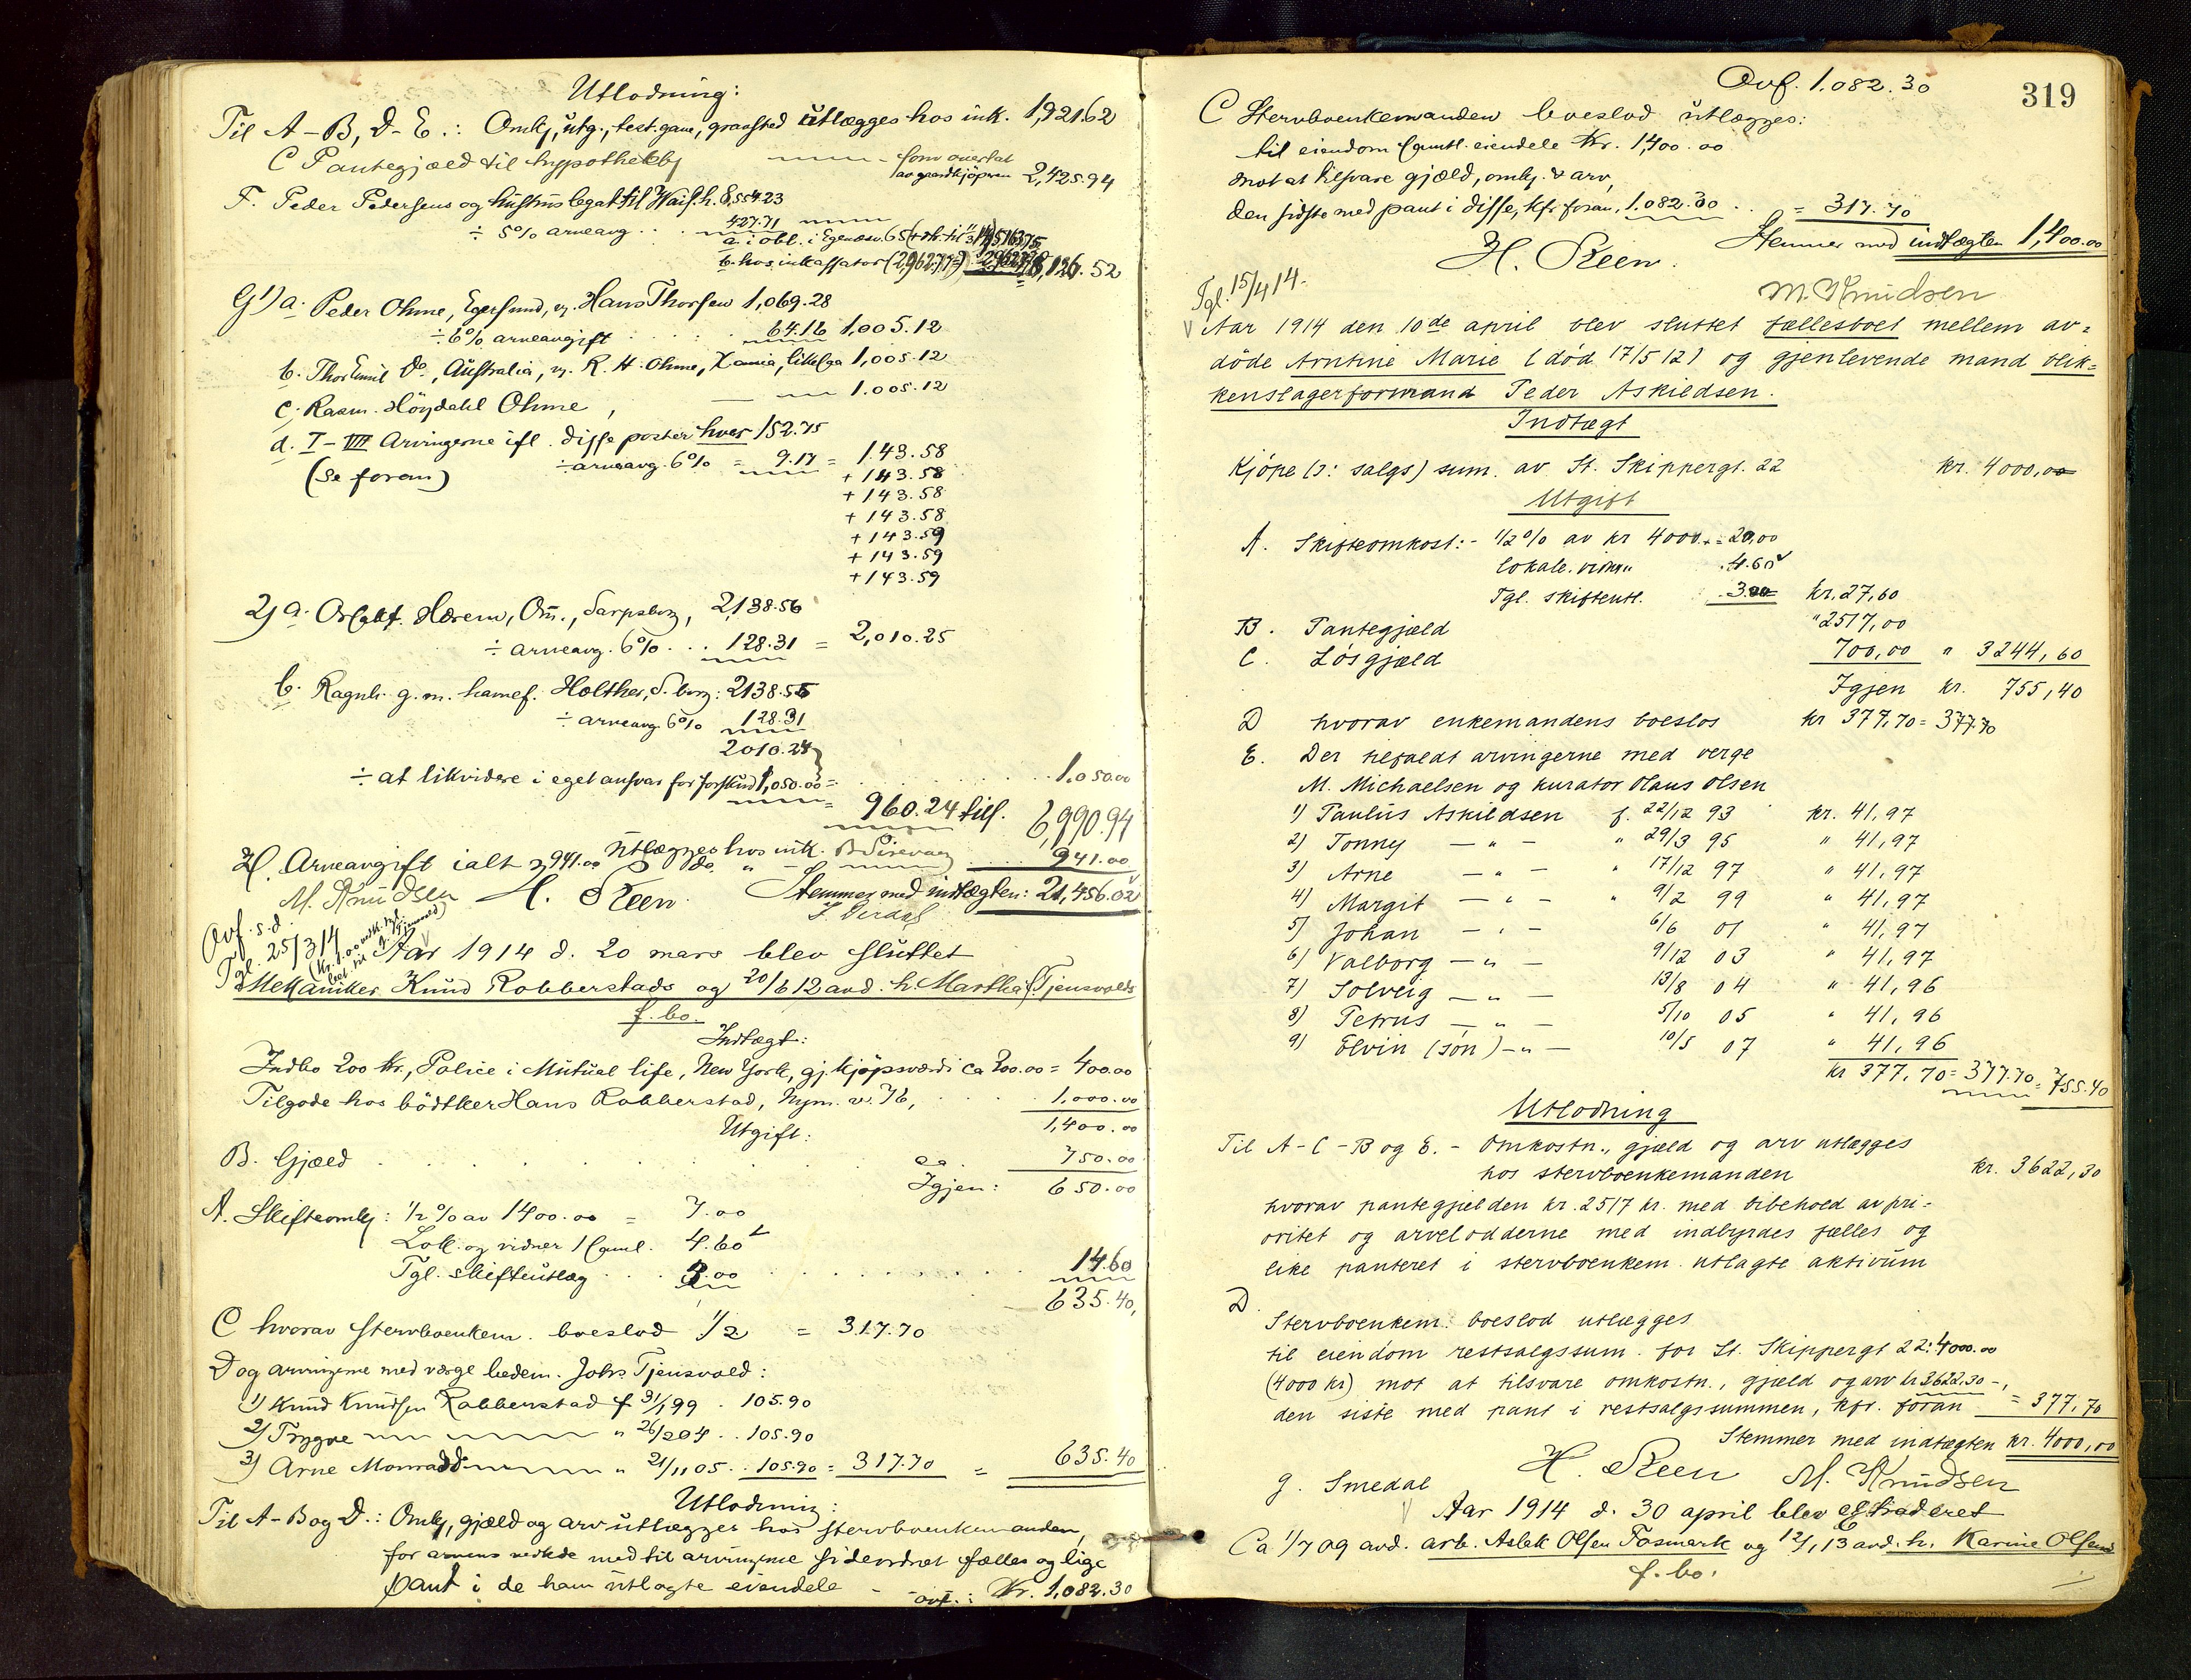 Utlodning:
Til A-B, D-E.: Omk, utg., test.gave, gravsted utlægges hos ink. 1,921.62
C Pantegjæld til hypothekbk som overtat av grundkjöperen 2,425.94
F. Peder Pedersens og hustrus legat til Waish. 8,554.23
÷ 5% arveavg. . . 427.71
a. i obl. i Egenæsv. 65
b. hos inkassator (2,962.77=) 8,126.52
G 1) a. Peder Ohme, Egersund, v. Hans Thorsen 1,069.28
÷ 6% arveavgift . . . 64.16 1,005.12
b. Thor Emil do, Australia, v. R. H. Ohme, Xania, likesaa 1,005.12
c. Rasm. Höydahl Ohme, — 1.005.12
d. I-VII Arvingerne ifl. disse poster hver 152.75
(se foran) ÷ arveavg. 6% = 9.17 = 143.58
+ 143.58
+ 143.58
+ 143.58
+ 143.59
+ 143.59
+ 143.59
2) a. Hærem, Sarpsborg, 2,138.56
÷ arveavg. 6% . . . 128.31 = 2,010.25
b. Ragnh. g. m. Holther, S.borg: 2138.55
÷ arveavg. 6% 128.31
2010.24
÷ at likvidere i eget ansvar for forskud 1,050.00 = . . . 1.050.00
= 960.24 tils. 6,990.94
Utlægges hos ink. B Sirevaag
H. Arveavgift ialt 941.00 do " — . . . 941.00
M. Knudsen H. Steen. Stemmer med indtægten: 21,456.02
Avf. s.d.
Tgl. 25/3 14
Aar 1914 d. 20 mars blev sluttet
Mekaniker Knud Robberstads og 20/6 12 avd. h. Martha f. Tjensvolds
f. bo.
Indtægt:
Indbo 200 kr., Police i Mutual life, New York, gj.kjöpsværdi ca 200.00 = 400.00
Tilgode hos bödtker Hans Robberstad, Nym. v. 76, . . 1,000.00
1,400.00
Utgift:
B. Gjæld . . . ca. 750.00
Igjen: 650.00
A. Skifteomk: 1/2 % av 1400.00 = 7.00
Lok. og vidner 1 saml. 4.60
Tgl. skifteutlæg . . 3.00 . . . 14.60
635.40,
C hvorav stervboenkem. boeslod 1/2 = 317.70
D og arvingerne med værge bedem. Johs Tjensvold:
1) Knud Knudsen Robberstad f 31/1 99 . 105.90
2) Trygve — — " 26/2 04 . . 105.90
3) Arne Monradd — " 21/11 05 . . 105.90 = 317.70 = 635.40
Utlodning:
Til A-B og D.: Omk, gjæld og arv utlægges hos stervboenkemanden,
for arvens vedkde med til arvingerne sideordnet fælles og lige
pant i de ham utlagte eiendele — ovf.: Kr. 1,082.30
319
Ovf. 1.082.30
C Stervboenkemanden boeslod utlægges:
til eiendom samtl. eiendele Kr. 1,400.00
mot at tilsvare gjæld, omk. & arv,
den sidste med pant i disse, kfr. foran, 1.082.30 . . = 317.70
Stemmer med indtægten 1,400.00
H. Steen.
M. Knudsen
Tgl. 15/4 14.
Aar 1914 den 10de april blev sluttet fællesboet mellem av=
döde Arntine Marie (död 17/5 12) og gjenlevende mand blik=
kenslagerformand Peder Askildsen.
Indtægt
Kjöpe (ɔ: salgs) sum. av St. Skippergt. 22 kr. 4000,00
Utgift
A. Skifteomkost:- 1/2 % av kr 4000.- = 20,00
lokale. vidn. " . 4.60
Tgl. skifteutl. 3.00 kr. 27,60
B. Pantegjæld " 2517,00
C. Lösgjæld 700,00 " 3244,60
Igjen kr. 755,40
D hvorav enkemandens boeslod kr 377,70 = 377.70
E. Der tilfaldt arvingerne med verge
M. Michaelsen og kurator Olaus Olsen
1) Paulus Askildsen f. 22/12 93 kr. 41,97
2) Tonny — " — " 29/3 95 " 41,97
3) Arne — " — " 17/12 97 " 41,97
4) Margit — " — " 9/2 99 " 41,97
5) Johan — " — 6/6 01 " 41,97
6) Valborg — " — 9/12 03 " 41,97
7) Solveig — " — 13/8 04 " 41,96
8) Petrus — " — 5/10 05 " 41,96
9) Elvin (sön) — " — 10/5 07 " 41,96
kr 377,70 = 377.70 = 755.40
Utlodning
Til A-C-B og E.- Omkostn., gjæld og arv utlægges
hos stervboenkemanden kr. 3622,30
hvorav pantegjælden kr. 2517 kr. med bibehold av pri=
oritet og arvelodderne med indbyrdes fælles og
like panteret i stervboenkem. utlagte aktivum
D.
Stervboenkem. boeslod utlægges
til eiendom restsalgssum. for St. Skippergt 22: 4000.00
(4000 kr) mot at tilsvare omkostn., gjæld og arv kr 3622,30 -,
den siste med pant i restsalgssummen, kfr. foran = 377,70
Stemmer med indtægten kr. 4000,00
H. Steen M. Knudsen
G. Smedal
Aar 1914 d. 30 april blev extraderet
Ca 1/7 09 avd. arb. Aslak Olsen Tosmark og 12/1 13 avd. h. Karine Olsens
f. bo.